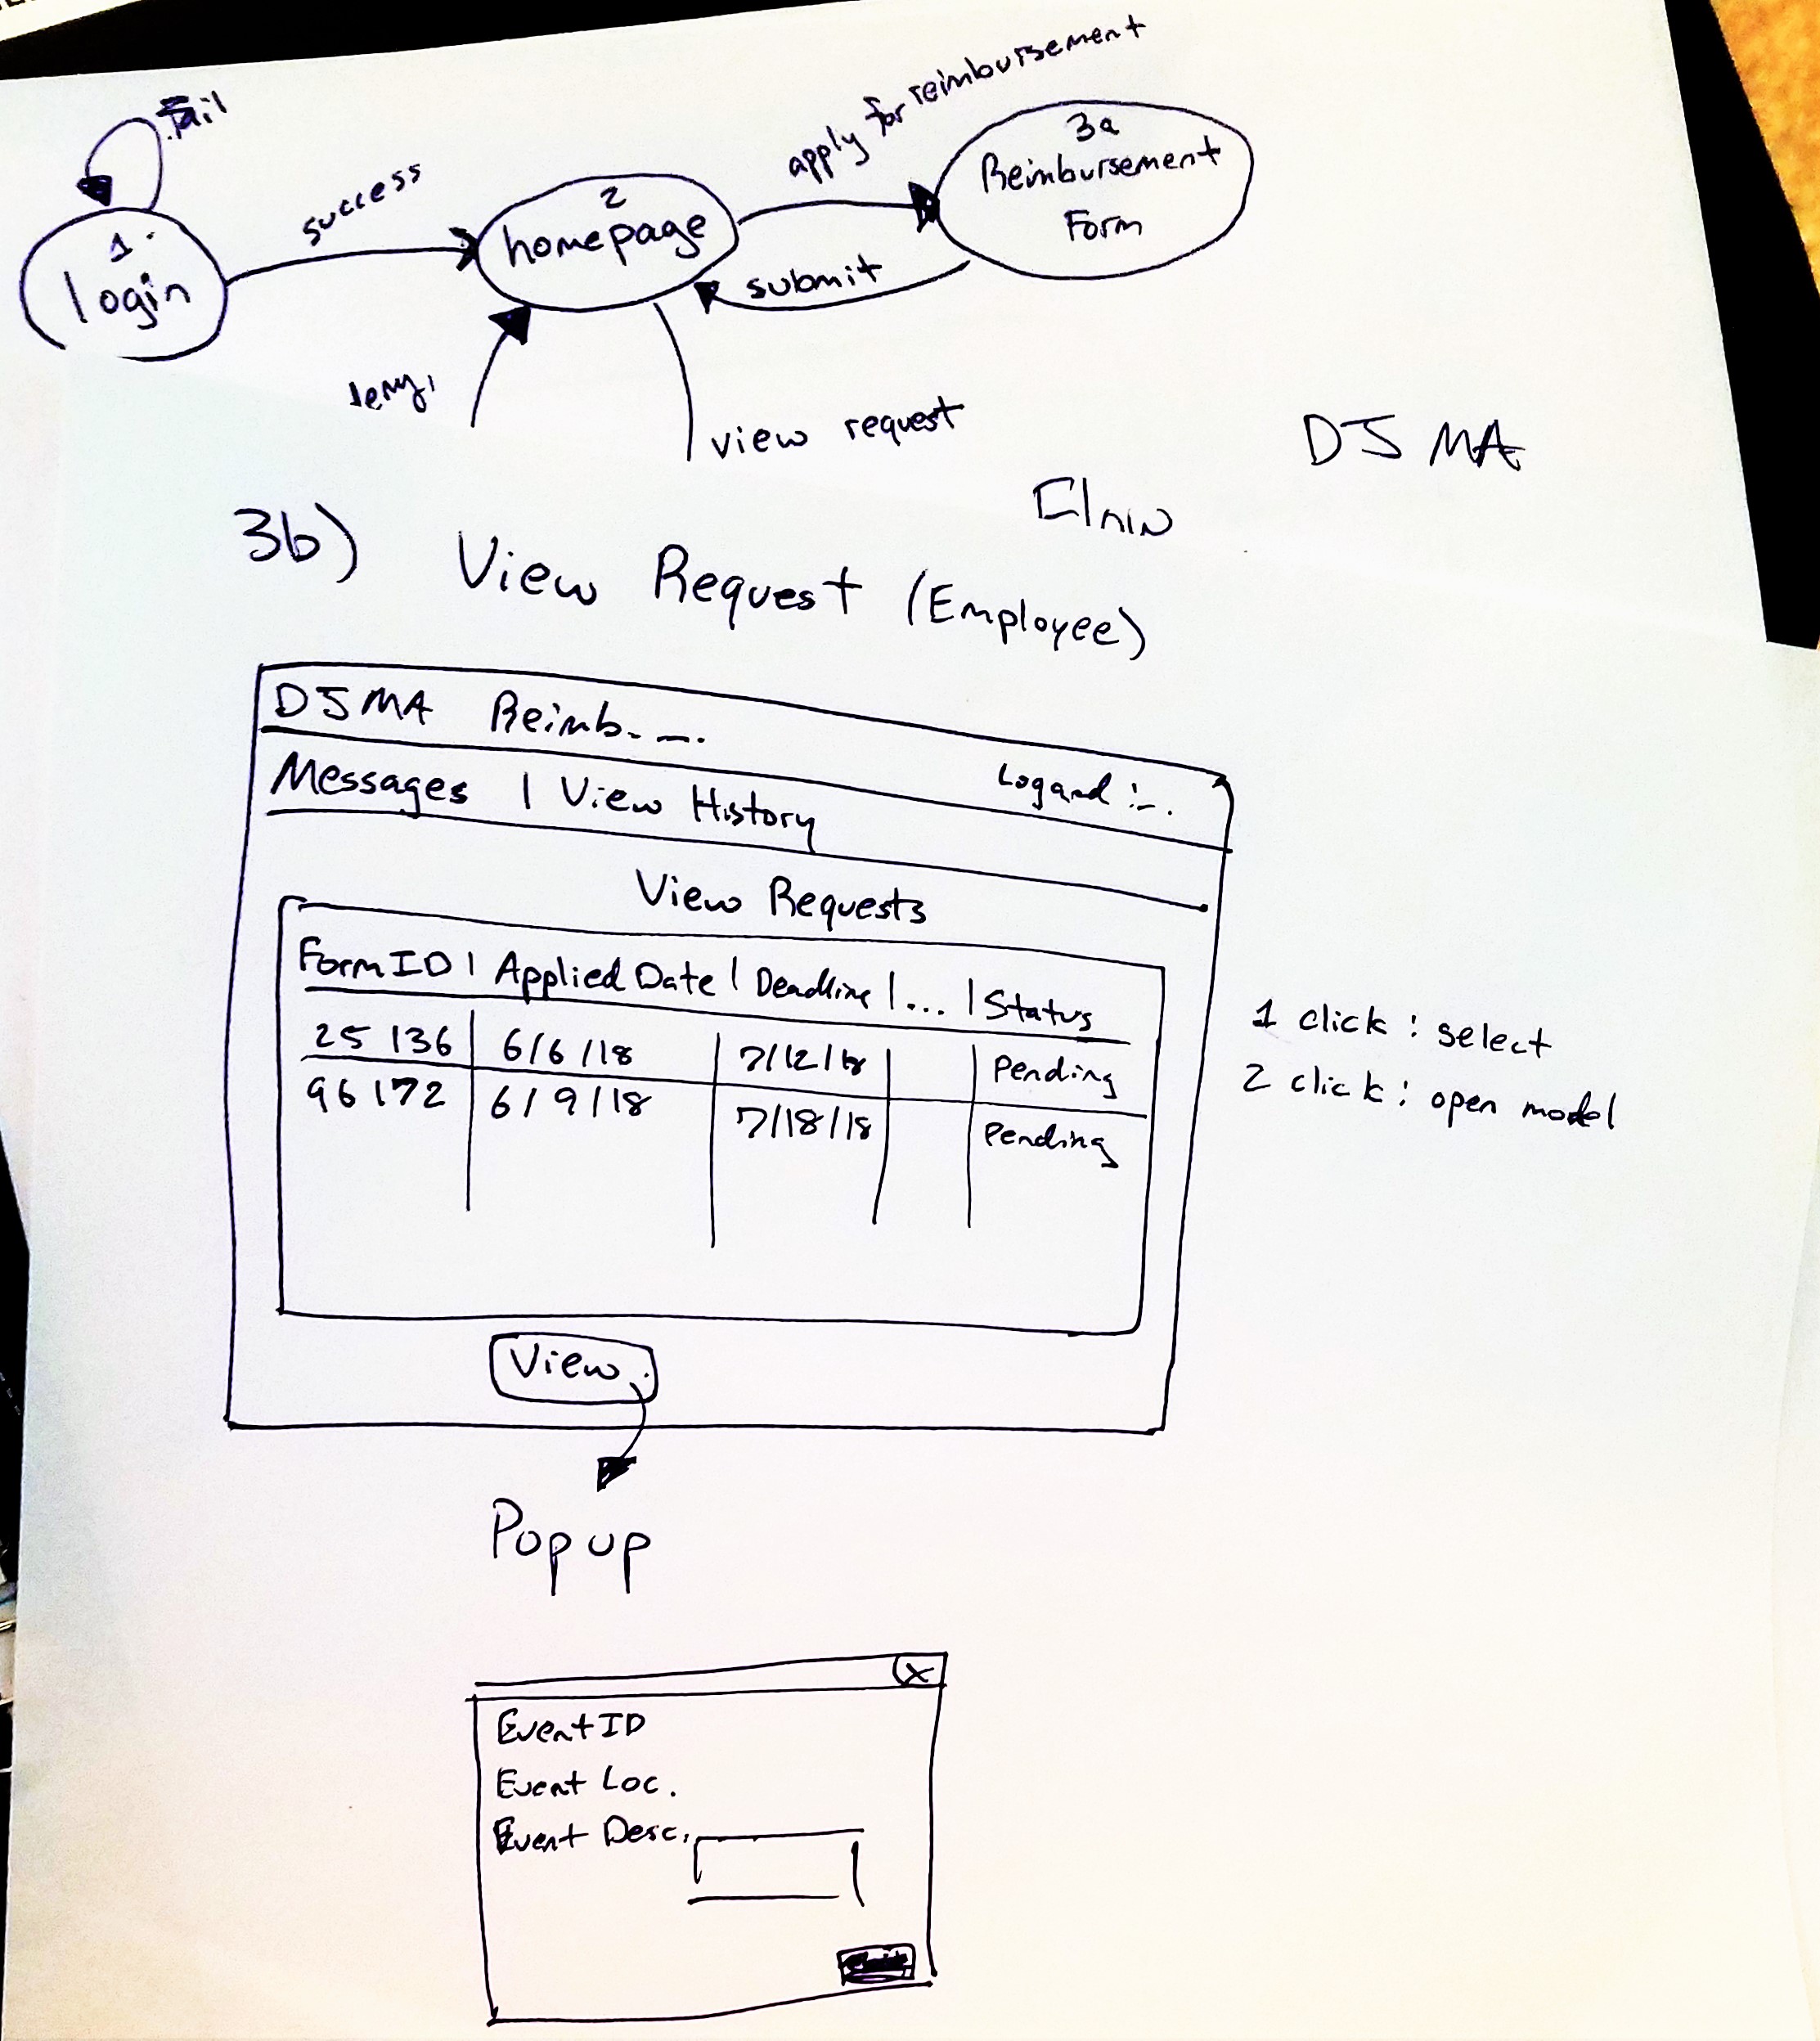 Fail
success
apply for reimbursement
1
login
2
homepage
3a
Reimbursement
Form
submit
view request
DJMA
3b) View Request (Employee)
DJMA Reimb. __.
Messages | View History
View Requests
Form ID | Applied Date | Deadline | ... | Status
25136 6/6/18 7/12/18 Pending
96172 6/9/18 7/18/18 Pending
1 click : select
2 click : open model
View
Pop up
X
Event ID
Event Loc.
Event Desc.